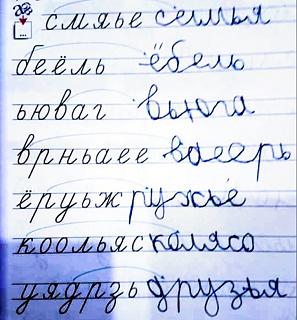 смяье семья
беёль ёбель
ьюваг вьюга
врньаее ваеерь
ёруьж ружьё
коольясколясо
уядрзь друзья